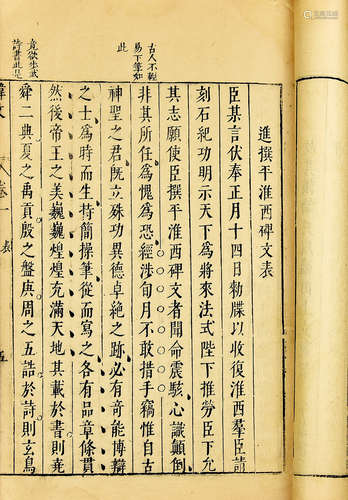 進撰平淮西碑文表
臣某言伏奉正月十四日勅牒以收復淮西羣臣請
刻石紀功明示天下為將來法式陛下推勞臣下允
其志願使臣撰平淮西碑文者聞命震駭心識顛倒
非其所任為愧為恐經涉旬月不敢措手竊惟自古
神聖之君既立殊功異德卓絶之跡必有奇能博辯
之士為時而生持簡操筆從而寫之各有品章條貫
然後帝王之美巍巍煌煌充滿天地其載於書則堯
舜二典夏之禹貢殷之盤庚周之五誥於詩則玄鳥
古人不輕
易下筆如
此
竟欲步武
詩書此是
韓文
卷一
表
五